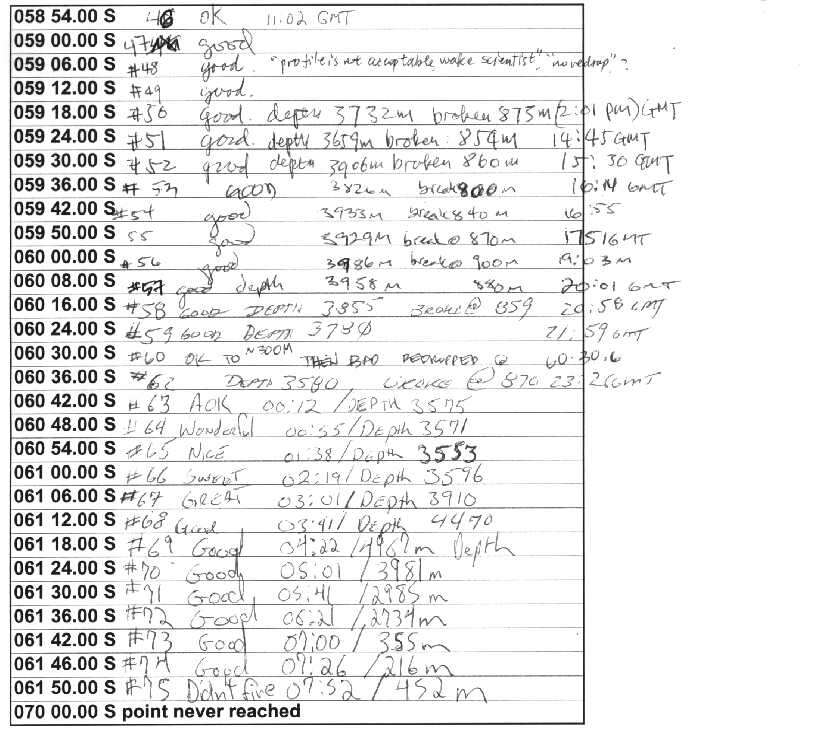 058 54.00 S 46 OK 11:02 GMT
059 00.00 S 47 good
059 06.00 S #48 good. "profile is not acceptable wake scientist", "no redrop"?
059 12.00 S #49 good.
059 18.00 S #50 good. depth 3732m broken 875m (2:01 pm) GMT
059 24.00 S #51 good. depth 3659m broken: 854m 14:45 GMT
059 30.00 S #52 good depth 3906m broken 860m 15:30 GMT
059 36.00 S # 53 GOOD 3826m break 800m 16:14 GMT
059 42.00 S #54 good 3933M break 840m 16:55
059 50.00 S 55 good 3929M break@ 870m 1751 GMT
060 00.00 S #56 good 3986m break@ 900m 19:03 M
060 08.00 S #57 good depth 3958m 880m 20:01 GMT
060 16.00 S #58 GOOD DEPTH 3855 BROKE@ 859 20:58 GMT
060 24.00 S #59 GOOD DEPTH 3780 21:59 GMT
060 30.00 S #60 OK TO ~300M THEN BAD REDROPPED @ 60.30.6
060 36.00 S #62 DEPTH 3580, BROKE @ 870 23:26 GMT
060 42.00 S #63 AOK 00:12 /DEPTH 3575
060 48.00 S #64 Wonderful 00:55/Depth 3571
060 54.00 S #65 NICE 01:38/Depth 3553
061 00.00 S #66 SWEET 02:19/Depth 3596
061 06.00 S #67 GREAT 03:01/Depth 3910
061 12.00 S #68 Good 03:41/Depth 4470
061 18.00 S #69 Good 04:22 /4967m Depth
061 24.00 S #70 Good 05:01 /3981m
061 30.00 S #71 Good 05:41 /2985m
061 36.00 S #72 Good 06:21 /2734m
061 42.00 S #73 Good 07:00 / 355m
061 46.00 S #74 Good 07:26 /216m
061 50.00 S #75 Didn't fire 07:52 / 452m
070 00.00 S point never reached